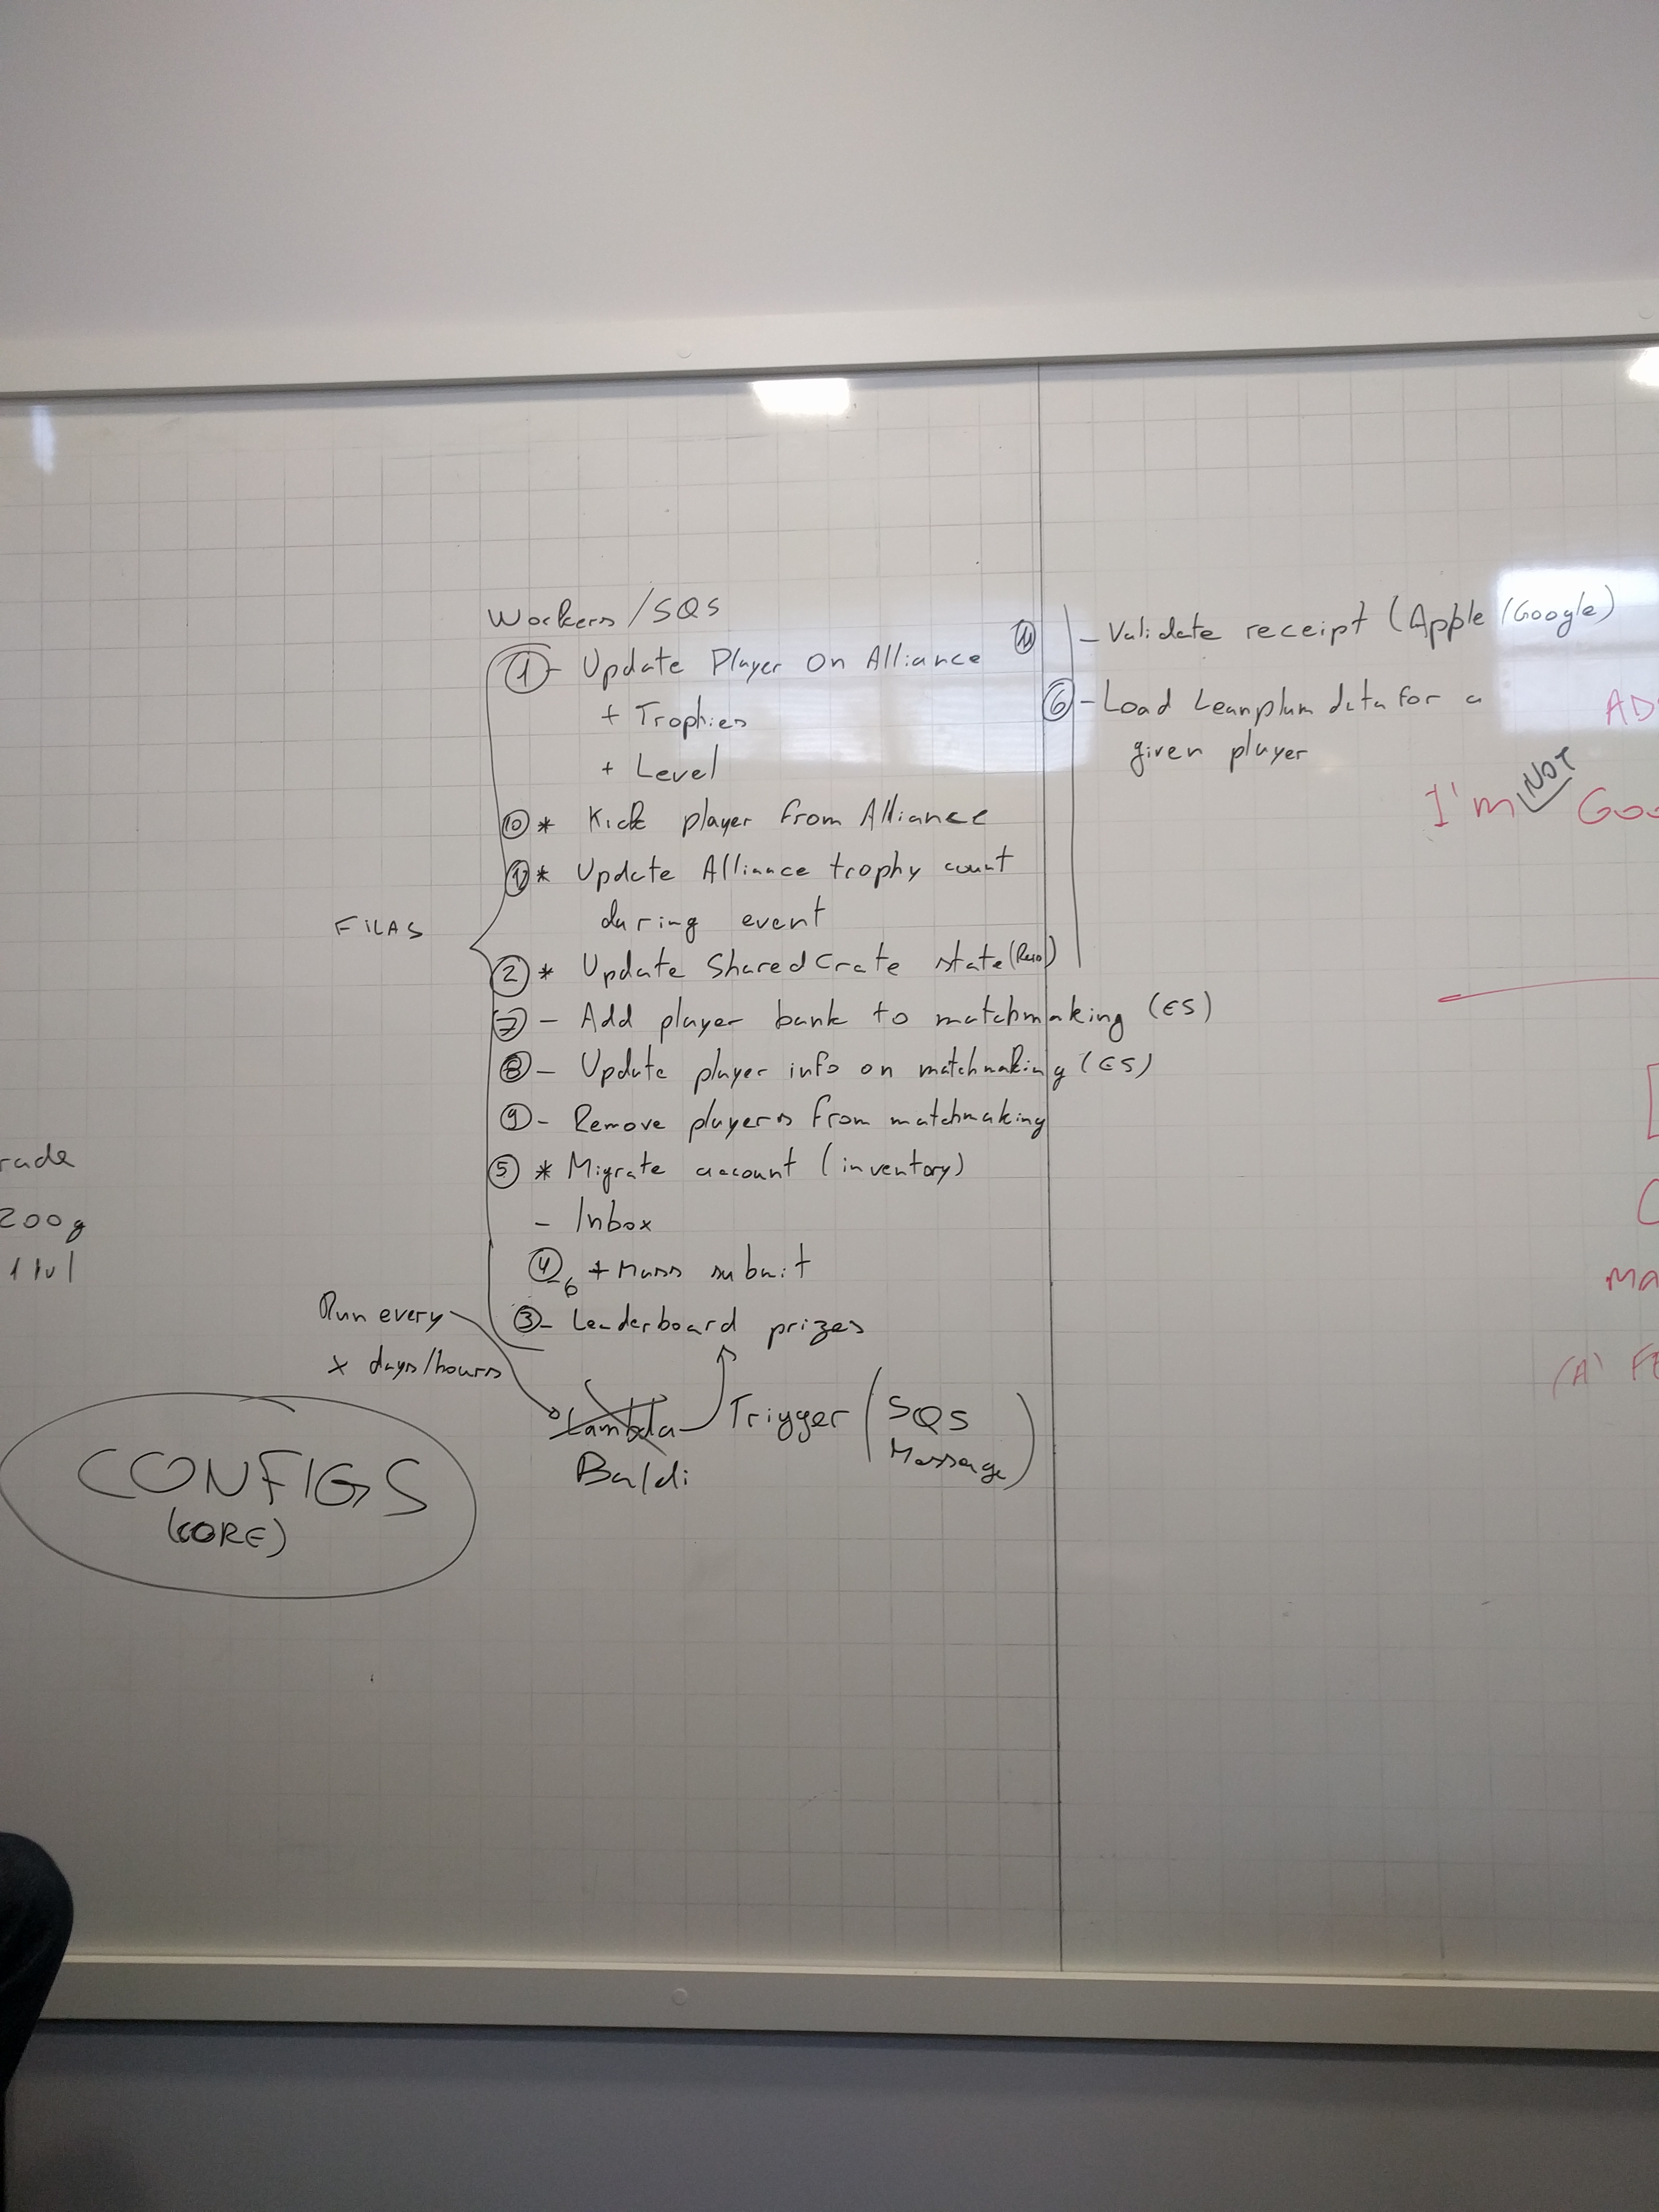 Workers/SQS
① - Update Player On Alliance
+ Trophies
+ Level
⑩ * Kick player from Alliance
* Update Alliance trophy count
during event
FILAS
② * Update SharedCrate state
⑦ - Add player bank to matchmaking (ES)
⑧ - Update player info on matchmaking (ES)
⑨ - Remove players from matchmaking
⑤ * Migrate account (inventory)
- Inbox
④ + Mass submit
③ - Leaderboard prizes
Run every
x days/hours
Lambda
Trigger (SQS
Message)
Baldi
CONFIGS
(CORE)
- Validate receipt (Apple/Google)
⑥ - Load Leanplum data for a
given player
I'm NOT Goo
200g
1 lvl